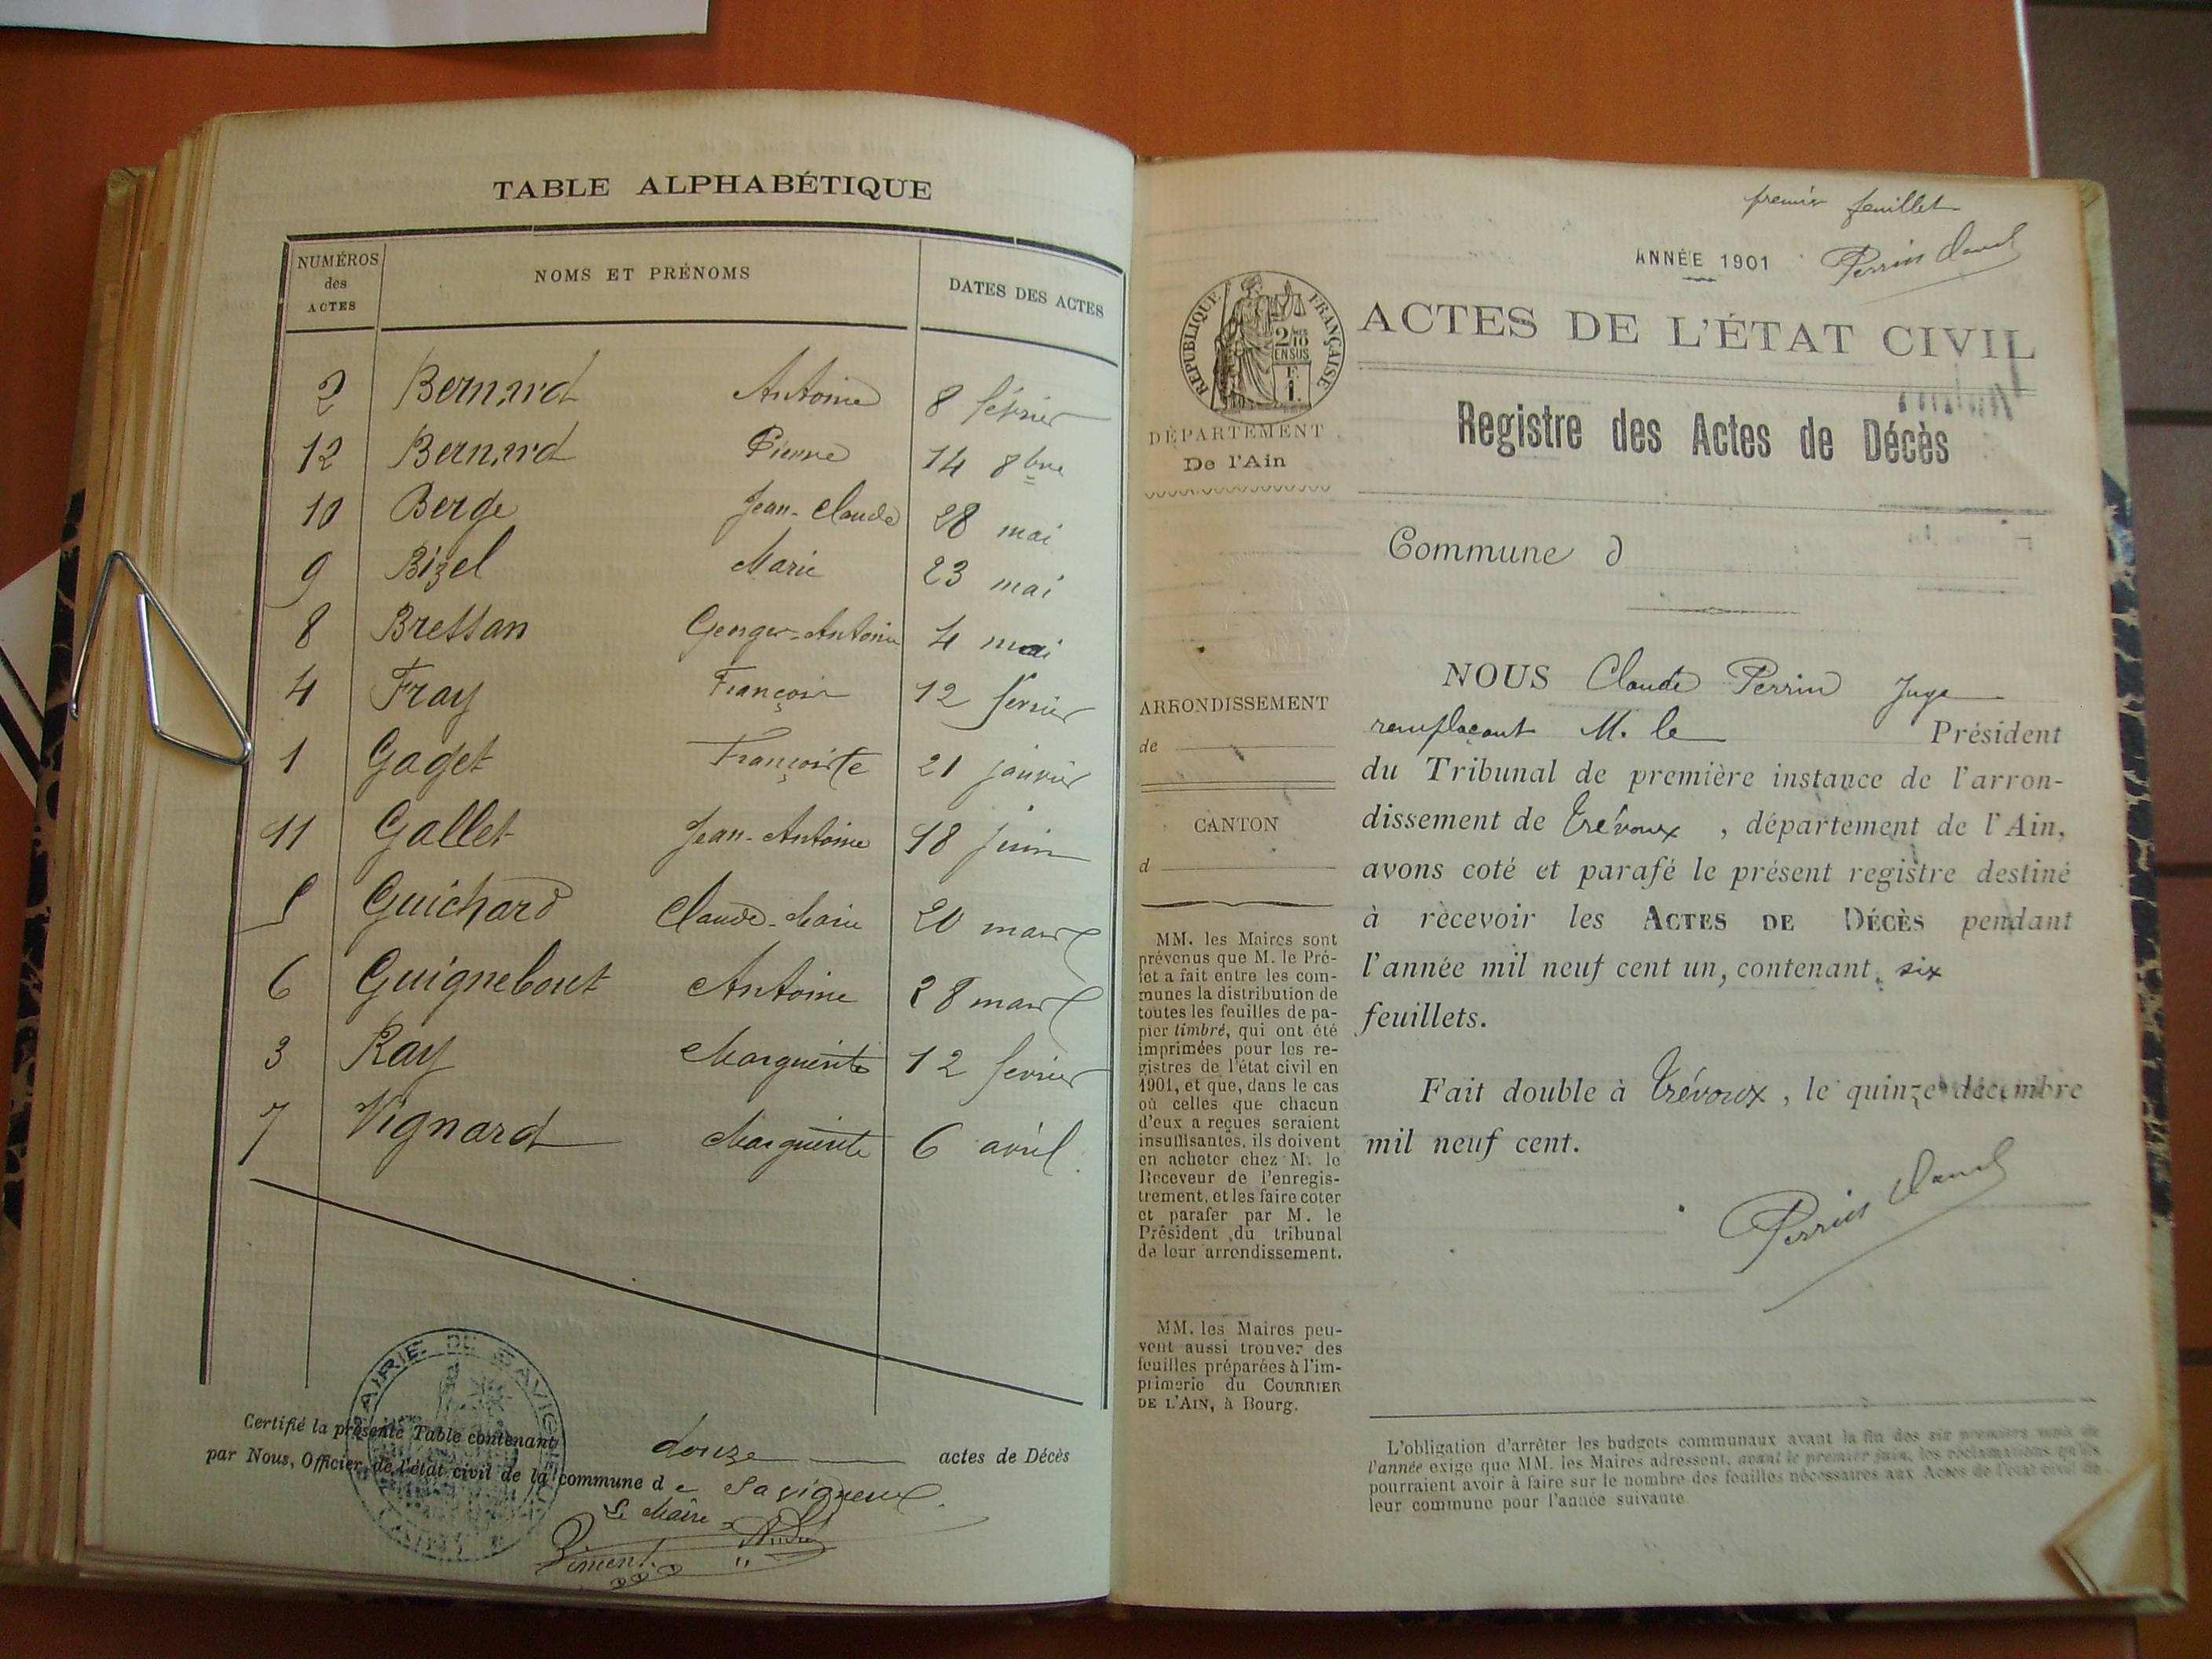 TABLE ALPHABÉTIQUE
NUMÉROS des ACTES
NOMS ET PRÉNOMS
DATES DES ACTES
2 Bernard Antoine 8 février
12 Bernard Pierre 14 8bre
10 Berge Jean-Claude 28 mai
9 Bizel Marie 23 mai
8 Bressan Antoine 4 mai
4 Fray François 12 fevrier
1 Gaget Françoise 21 janvier
11 Gallet Jean-Antoine 18 juin
5 Guichard Claude-Marie 20 mars
6 Guignebout Antoine 28 mars
3 Ray Marguerite 12 fevrier
7 Vignard Marguerite 6 avril
Certifié la présente Table contenant douze actes de Décès
par Nous, Officier de l'état civil de la commune de Savigneux.
Le Maire
MAIRIE DE SAVIGNEUX
premier feuillet
ANNÉE 1901 Perrin Claude
RÉPUBLIQUE FRANÇAISE
2/10 EN SUS
F. 1.
ACTES DE L'ÉTAT CIVIL
Registre des Actes de Décès
DÉPARTEMENT
De l'Ain
Commune d
ARRONDISSEMENT
de
CANTON
d
MM. les Maires sont
prévenus que M. le Pré-
fet a fait entre les com-
munes la distribution de
toutes les feuilles de pa-
pier timbré, qui ont été
imprimées pour les re-
gistres de l'état civil en
1901, et que, dans le cas
où celles que chacun
d'eux a reçues seraient
insuffisantes, ils doivent
en acheter chez M. le
Receveur de l'enregis-
trement, et les faire coter
et parafer par M. le
Président du tribunal
de leur arrondissement.
MM. les Maires peu-
vent aussi trouver des
feuilles préparées à l'im-
primerie du COURRIER
DE L'AIN, à Bourg.
NOUS Claude Perrin Juge
remplaçant M. le Président
du Tribunal de première instance de l'arron-
dissement de Trévoux, département de l'Ain,
avons coté et parafé le présent registre destiné
à recevoir les ACTES DE DÉCÈS pendant
l'année mil neuf cent un, contenant six
feuillets.
Fait double à Trévoux, le quinze décembre
mil neuf cent.
Perrin Claude
L'obligation d'arrêter les budgets communaux avant la fin des six premiers mois de
l'année exige que MM. les Maires adressent, avant le premier juin, les réclamations qu'ils
pourraient avoir à faire sur le nombre des feuilles nécessaires aux Actes de l'état civil de
leur commune pour l'année suivante.